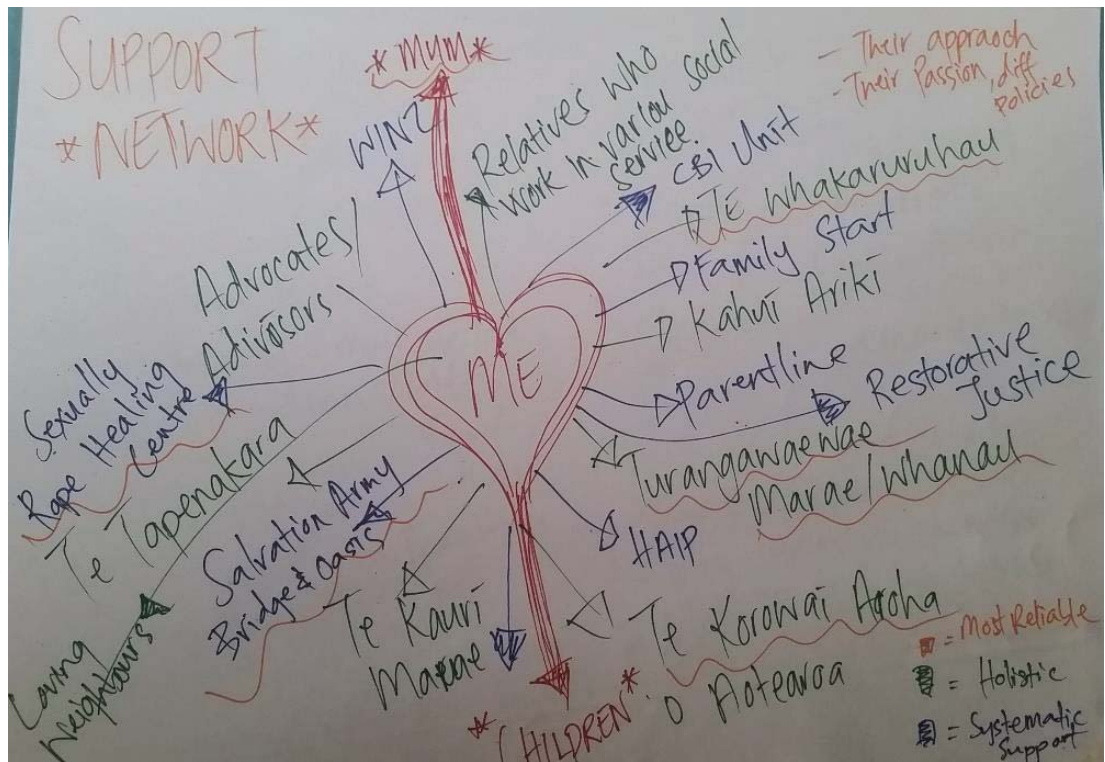 SUPPORT
*NETWORK*
*MUM*
- Their appraoch
- Their Passion, diff
policies
WINZ
Relatives who
work in variou social
service.
CBI Unit
TE whakaruruhau
Family Start
Kahui Ariki
Parentline
Restorative
Justice
Turangawaewae
Marae/Whanau
HAIP
Te Korowai Aroha
o Aotearoa
*CHILDREN*
Te Kauri
Marae
Salvation Army
Bridge & Oasis
Loving
Neighbours
Te Tapenakara
Sexually
Rape Healing
Centre
Advocates/
Adivosors
ME
= Most Reliable
= Holistic
= Systematic
Support